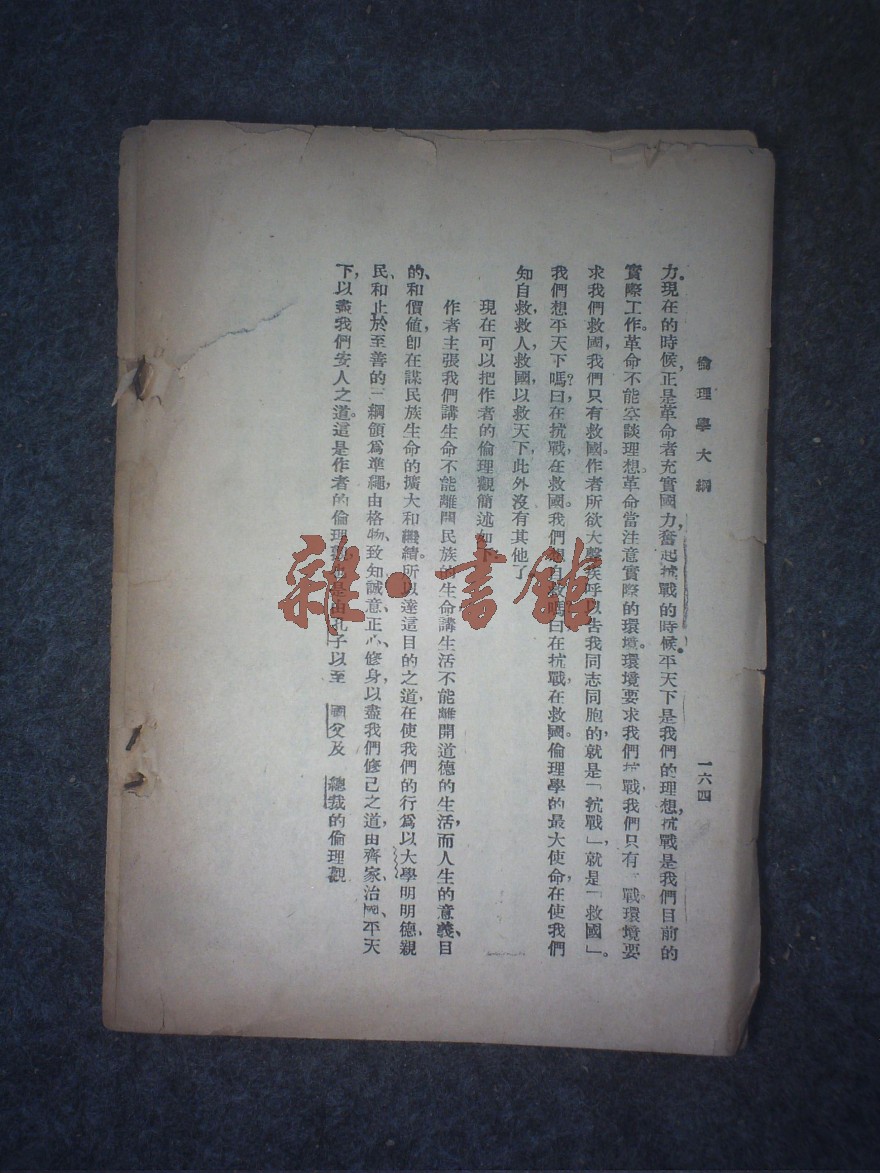 倫理學大綱
一六四
力。現在的時候，正是革命者充實國力，奮起抗戰的時候。平天下是我們的理想，抗戰是我們目前的
實際工作。革命不能空談理想。革命當注意實際的環境。環境要求我們抗戰，我們只有戰。環境要
求我們救國，我們只有救國。作者所欲大聲疾呼以告我同志同胞的，就是「抗戰」，就是「救國」。
我們想平天下嗎？曰在抗戰，在救國。我們想自救嗎？曰在抗戰，在救國。倫理學的最大使命，在使我們
知自救，救人，救國，以救天下，此外沒有其他了
現在可以把作者的倫理觀簡述如下
作者主張我們講生命不能離開民族的生命，講生活不能離開道德的生活，而人生的意義、目
的、和價値，卽在謀民族生命的擴大和繼續。所以達這目的之道，在使我們的行爲以大學明明德、親
民、和止於至善的三綱領爲準繩，由格物、致知、誠意、正心、修身，以盡我們修己之道，由齊家、治國、平天
下，以盡我們安人之道。這是作者的倫理觀，也是由孔子以至 國父及 總裁的倫理觀
雜·書館